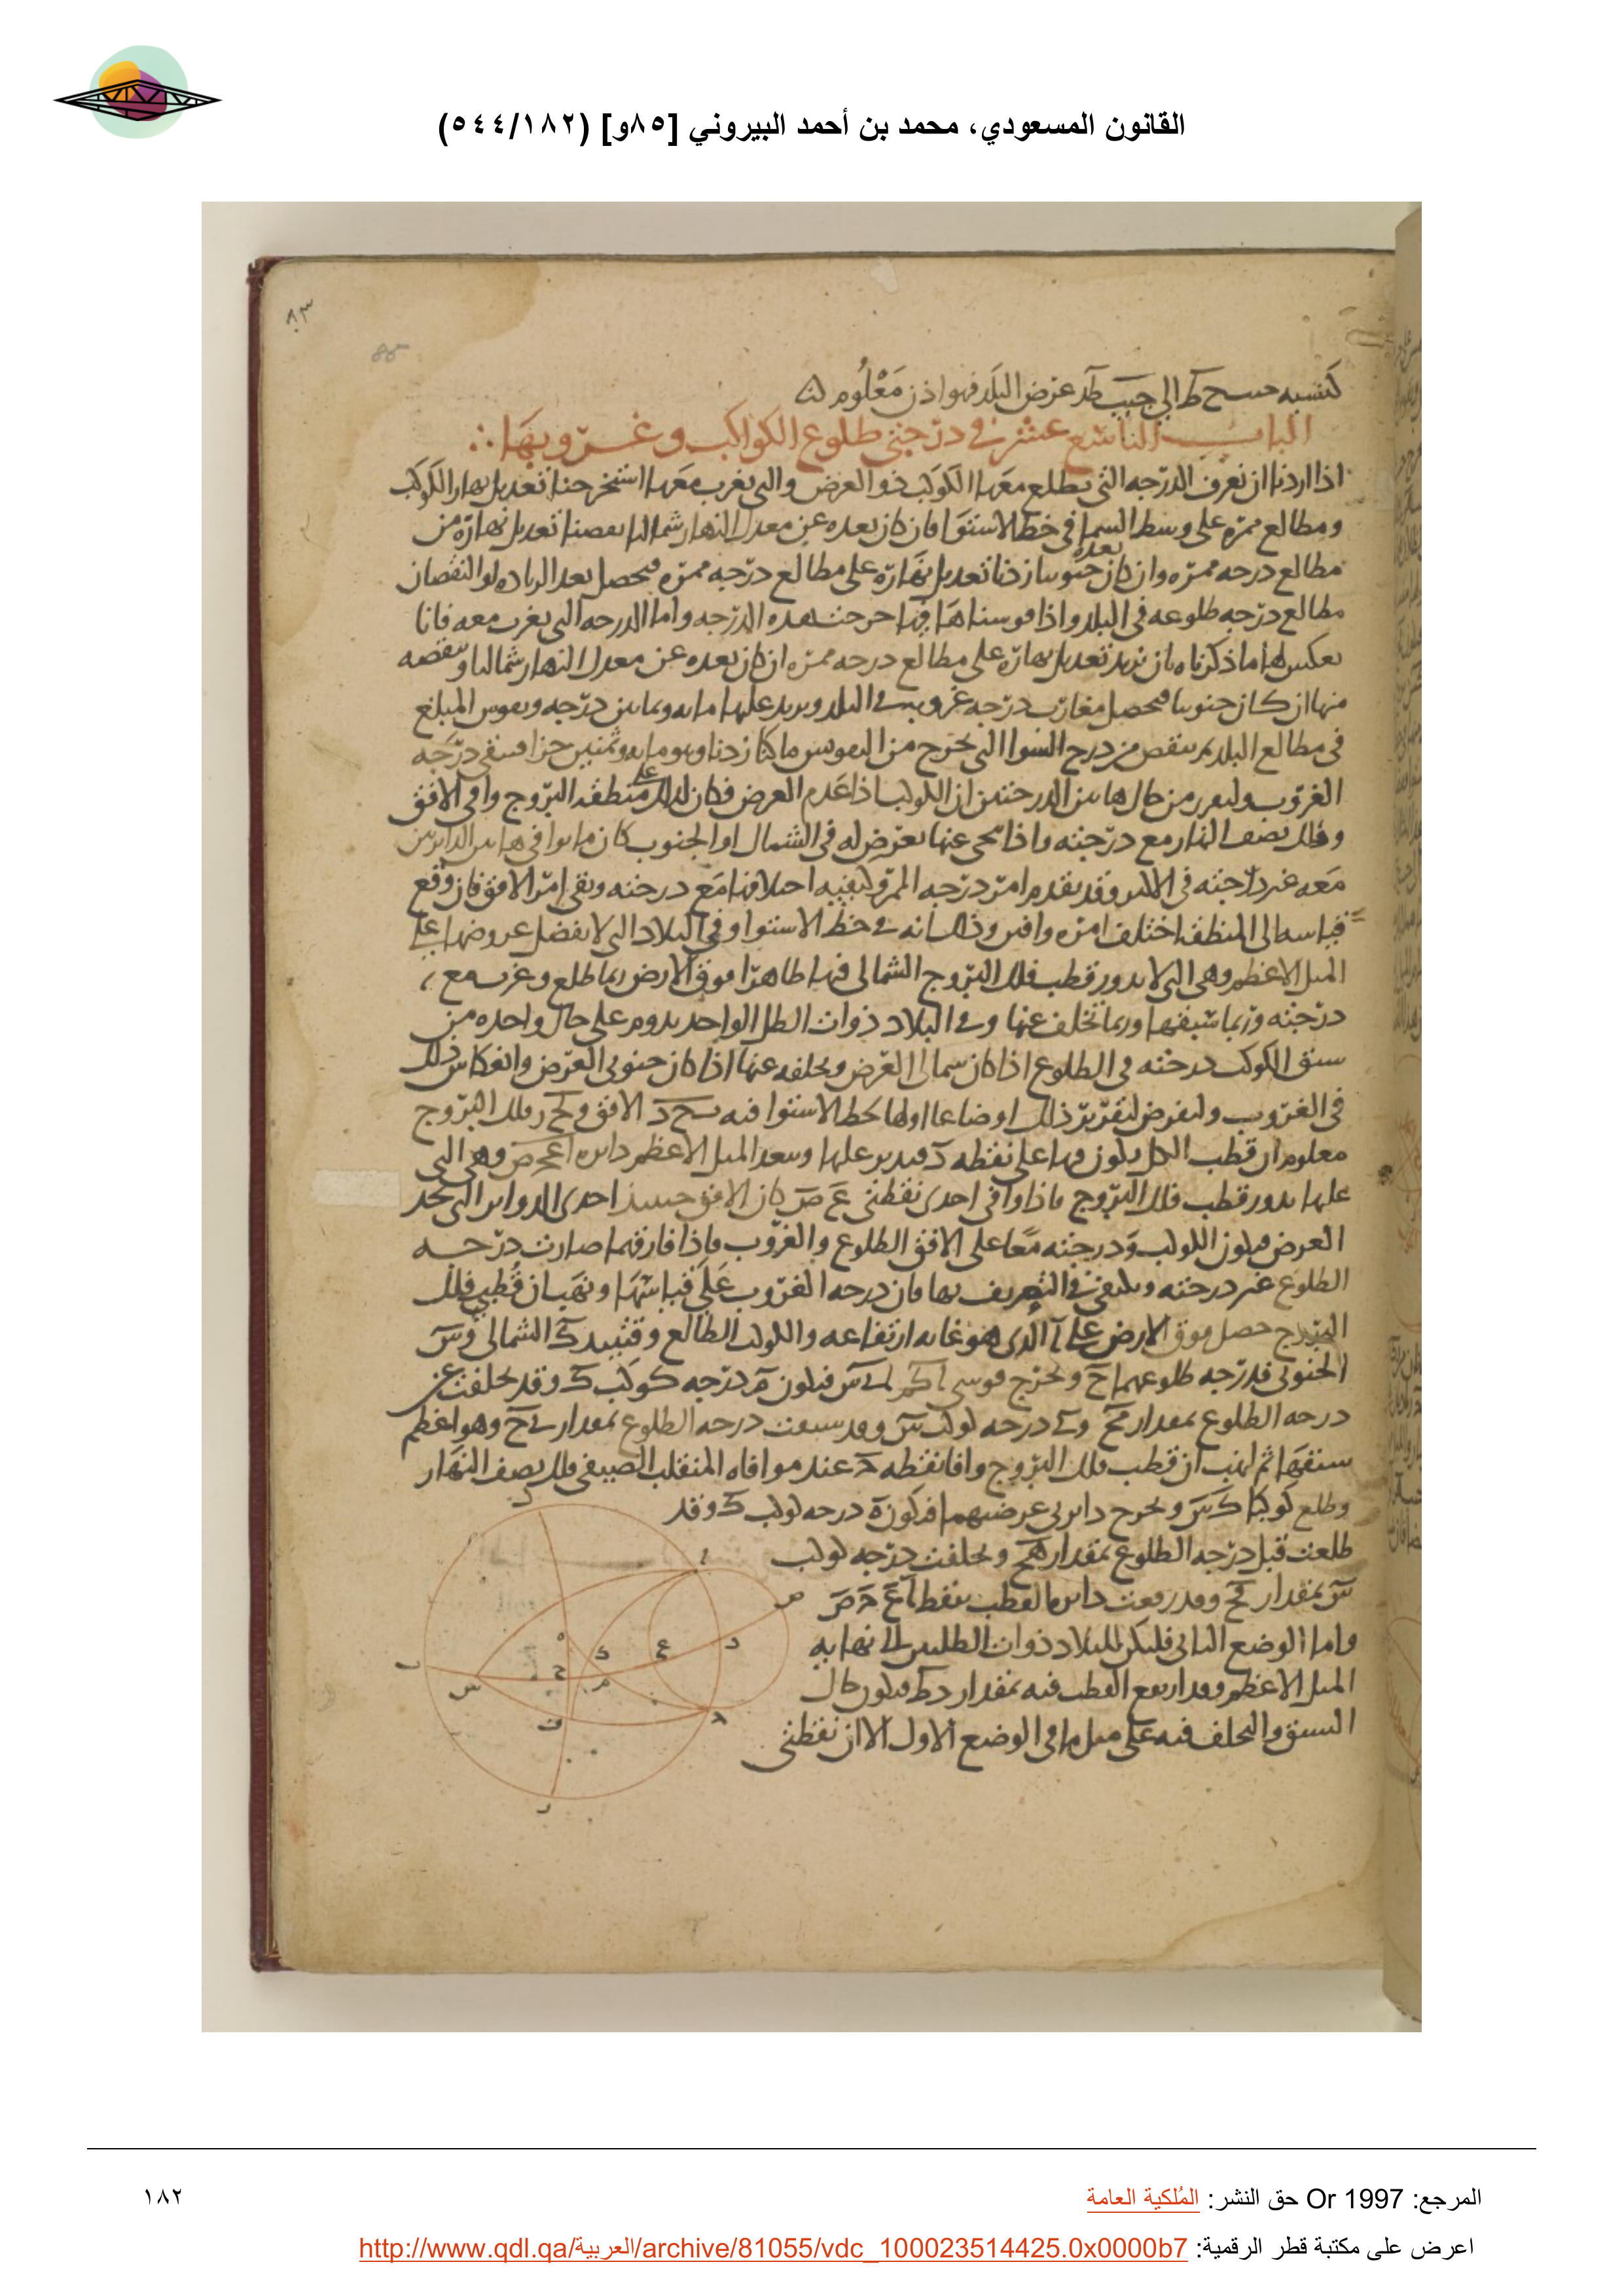 القانون المسعودي، محمد بن أحمد البيروني [٨٥و] (٥٤٤/١٨٢)
٨٣
85
كنسبه جيب ح ط الى جيب ط د عرض البلد فهو اذن معلوم لنا
الباب التاسع عشر في درجتي طلوع الكواكب وغروبها
اذا اردنا ان نعرف الدرجه التي يطلع معها الكوكب ذو العرض والتى يغرب معها استخرجنا تعديل نهار الكوكب
ومطالع ممره على وسط السما في خط الاستوا فان كان بعده عن معدل النهار شماليا نقصنا تعديل نهاره من
مطالع درجه ممره وان كان بعده جنوبيا زدنا تعديل نهاره على مطالع درجه ممره فيحصل بعد الزياده او النقصان
مطالع درجه طلوعه في البلد واذا قوسناها فيها خرجت هذه الدرجه واما الدرجه التى يغرب معه فانا
نعكس لها ما ذكرناه بان نزيد تعديل نهاره على مطالع درجه ممره ان كان بعده عن معدل النهار شماليا وننقصه
منها ان كان جنوبيا فيحصل مغارب درجه غروبه في البلد ونزيد عليها مايه وثمانين درجه ونقوس المبلغ
في مطالع البلد ثم ننقص من درج السوا التى تخرج من التقويس ما كنا زدناه وهو مايه وثمنين جزا فيبقى درجه
الغروب وليقرر من حال هاتين الدرجتين ان الكوكب اذا عدم العرض فكان لذلك على منطقه البروج وافى الافق
وفلك نصف النهار مع درجته واذا تنحى عنها بعرض له في الشمال او الجنوب كان ما يوافي هاتين الدايرتين
معه غير درجته في الاكثر وقد تقدم امر درجه الممر وكيفيه اختلافها مع درجته وبقى امر الافق فان وقع
قياسه الى المنطقه اختلف امره وافتن وذلك انه في خط الاستوا وفي البلاد التى لا يفضل عروضها على
الميل الاعظم وهى التى لا يدور قطب فلك البروج الشمالى فيها ظاهرا فوق الارض ربما طلع وغرب مع
درجته وربما سبقها وربما تخلف عنها وفي البلاد ذوات الظل الواحد يدوم على حال واحده من
سبق الكوكب درجته في الطلوع اذا كان شمالى العرض وتخلفه عنها اذا كان جنوبى العرض وانعكاس ذلك
في الغروب ولنفرض لتقرير ذلك اوضاعا اولها لخط الاستوا فيه ب ح د الافق و فلك البروج
معلوم ان قطب الكل يكون فيها على نقطه د فندير عليها وببعد الميل الاعظم دايره وهى التى
عليها يدور قطب فلك البروج فاذا وافى احدى نقطتى ع ص كان الافق حينيذ احدى الدواير التى تحد
العرض فيكون الكوكب ودرجته معا على الافق الطلوع والغروب فاذا فارقهما صارت درجه
الطلوع غير درجته ويكتفى في التعريف بها فان درجه الغروب على قياسها ونهب ان قطب فلك
البروج حصل فوق الارض على ا الذى هو غايه ارتفاعه والكوكب الطالع وقتيذ ك الشمالى و س
الجنوبى فدرجه طلوعهما ح ونخرج قوسى فيكون م درجه كوكب ك وقد تخلفت عن
درجه الطلوع بمقدار م ح و درجه كوكب س وقد سبقت درجه الطلوع بمقدار وهو اعظم
سبقها ثم لنهب ان قطب فلك البروج وافا نقطه عند موافاه المنقلب الصيفى فلك نصف النهار
وطلع كوكبا ك س ونخرج دايرتى عرضيهما فتكون ه درجه كوكب ك وقد
طلعت قبل درجه الطلوع بمقدار ه ح وتخلفت درجه كوكب
س بمقدار وقد رقمت داير القطب بنقط
واما الوضع الثانى فليكن للبلاد ذوات الظلين الى نهايه
الميل الاعظم ومدار القطب فيه بمقدار فيكون حال
السبق والتخلف فيه على مثل ما في الوضع الاول الا ان نقطتى
المرجع: Or 1997 حق النشر: المُلكية العامة
١٨٢
اعرض على مكتبة قطر الرقمية: http://www.qdl.qa/العربية/archive/81055/vdc_100023514425.0x0000b7